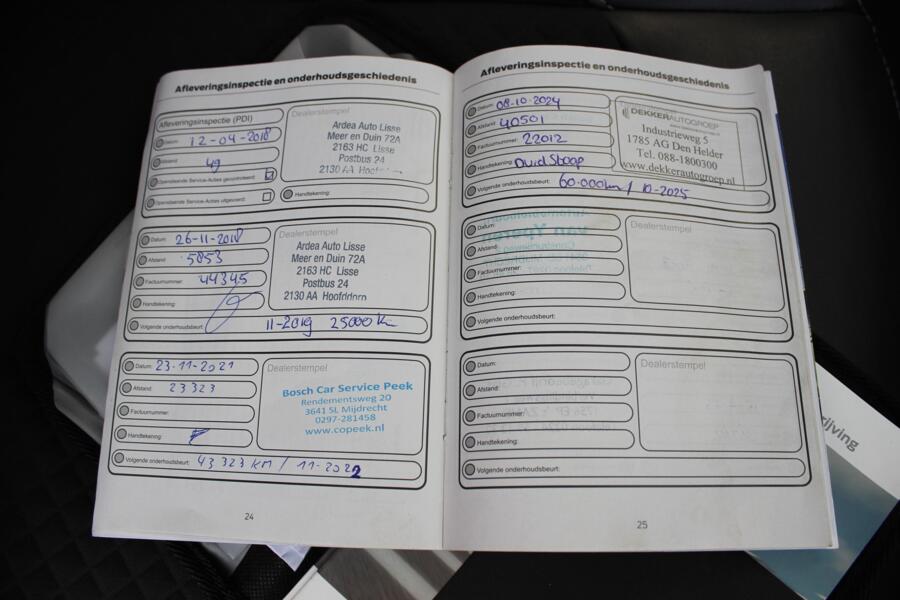 Afleveringsinspectie en onderhoudsgeschiedenis
Afleveringsinspectie (PDI)
Datum: 12-04-2018
Afstand: 49
Openstaande Service-Acties gecontroleerd:
Openstaande Service-Acties uitgevoerd:
Dealerstempel
Ardea Auto Lisse
Meer en Duin 72A
2163 HC Lisse
Postbus 24
2130 AA Hoofddorp
Handtekening:
Datum: 26-11-2018
Afstand: 5853
Factuurnummer: 44345
Handtekening:
Dealerstempel
Ardea Auto Lisse
Meer en Duin 72A
2163 HC Lisse
Postbus 24
2130 AA Hoofddorp
Volgende onderhoudsbeurt: 11-2019 25000 K
Datum: 23-11-2021
Afstand: 23323
Factuurnummer:
Handtekening:
Dealerstempel
Bosch Car Service Peek
Rendementsweg 20
3641 SL Mijdrecht
0297-281458
www.copeek.nl
Volgende onderhoudsbeurt: 43323 KM / 11-2022
24
Afleveringsinspectie en onderhoudsgeschiedenis
Datum: 08-10-2024
Afstand: 40501
Factuurnummer: 22012
Handtekening:
Dealerstempel
DEKKERAUTOGROEP
Industrieweg 5
1785 AG Den Helder
Tel. 088-1800300
www.dekkerautogroep.nl
Volgende onderhoudsbeurt: 60.000km / 10-2025
Datum:
Afstand:
Factuurnummer:
Handtekening:
Dealerstempel
Volgende onderhoudsbeurt:
Datum:
Afstand:
Factuurnummer:
Handtekening:
Dealerstempel
Volgende onderhoudsbeurt:
25